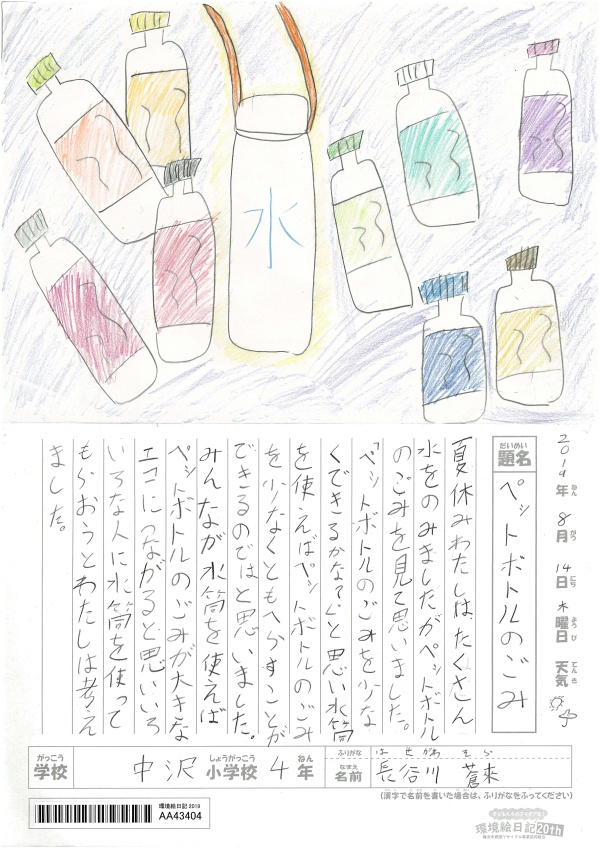 水
2019年 8月 14日 木曜日 天気
ねん がつ にち ようび てんき
だいめい
題名 ペットボトルのごみ
夏休みわたしはたくさん
水をのみましたがペットボトル
のごみを見て思いました。
「ペットボトルのごみを少な
くできるかな？」と思い水筒
を使えばペットボトルのごみ
を少なくともへらすことが
できるのではと思いました。
みんなが水筒を使えば
ペットボトルのごみが大きな
エコにつながると思いいろ
いろな人に水筒を使って
もらおうとわたしは考え
ました。
がっこう しょうがっこう ねん
学校 中沢 小学校 4年
ふりがな はせがわ そら
なまえ
名前 長谷川 蒼來
(漢字で名前を書いた場合は、ふりがなをふってください)
環境絵日記 2019
AA43404
環境絵日記 20th